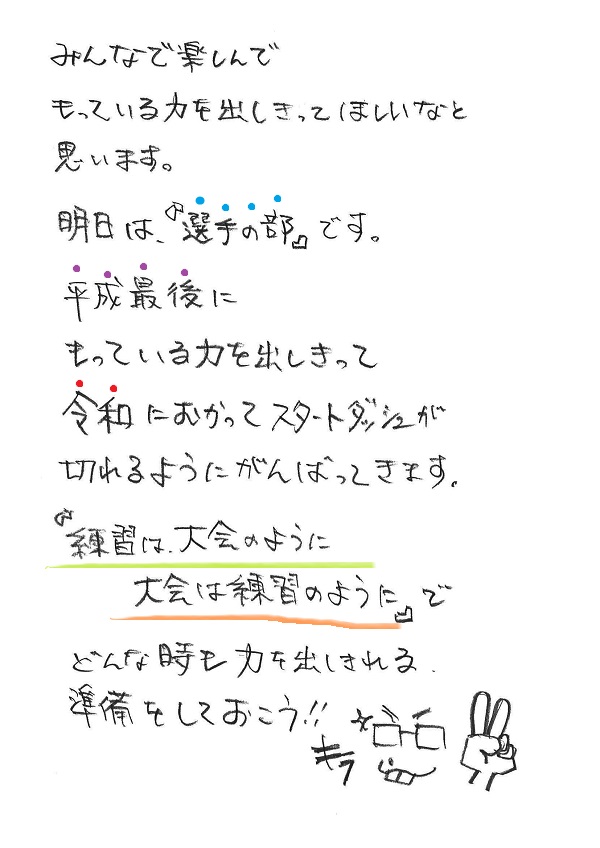 みんなで楽しんで
もっている力を出しきってほしいなと
思います。
明日は、『選手の部』です。
平成最後に
もっている力を出しきって
令和にむかってスタートダッシュが
切れるようにがんばってきます。
『練習は、大会のように
大会は練習のように』で
どんな時も力を出しきれる
準備をしておこう!!
キラ